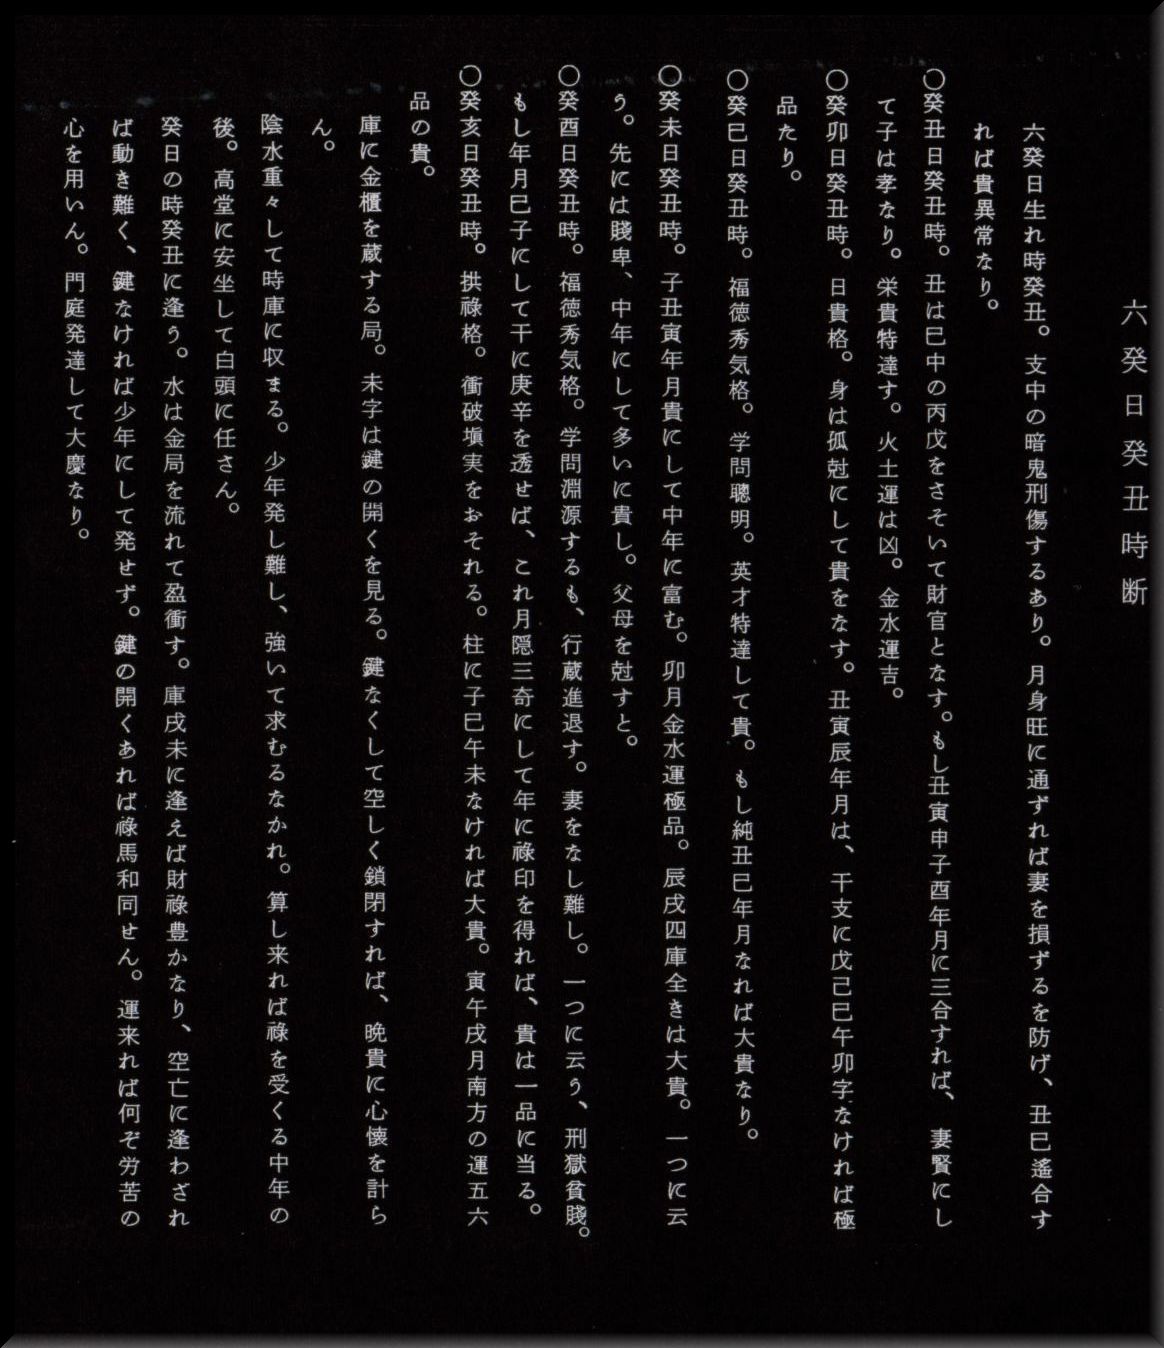 六癸日癸丑時断
六癸日生れ時癸丑。支中の暗鬼刑傷するあり。月身旺に通ずれば妻を損ずるを防げ、丑巳遙合す
れば貴異常なり。
〇癸丑日癸丑時。丑は巳中の丙戊をさそいて財官となす。もし丑寅申子酉年月に三合すれば、妻賢にし
て子は孝なり。栄貴特達す。火土運は凶。金水運吉。
〇癸卯日癸丑時。日貴格。身は孤尅にして貴をなす。丑寅辰年月は、干支に戊己巳午卯字なければ極
品たり。
〇癸巳日癸丑時。福徳秀気格。学問聰明。英才特達して貴。もし純丑巳年月なれば大貴なり。
〇癸未日癸丑時。子丑寅年月貴にして中年に富む。卯月金水運極品。辰戌四庫全きは大貴。一つに云
う。先には賤卑、中年にして多いに貴し。父母を尅すと。
〇癸酉日癸丑時。福徳秀気格。学問淵源するも、行蔵進退す。妻をなし難し。一つに云う、刑獄貧賤。
もし年月巳子にして干に庚辛を透せば、これ月隠三奇にして年に祿印を得れば、貴は一品に当る。
〇癸亥日癸丑時。拱祿格。衝破塡実をおそれる。柱に子巳午未なければ大貴。寅午戌月南方の運五六
品の貴。
庫に金櫃を蔵する局。未字は鍵の開くを見る。鍵なくして空しく鎖閉すれば、晩貴に心懐を計ら
ん。
陰水重々して時庫に収まる。少年発し難し、強いて求むるなかれ。算し来れば祿を受くる中年の
後。高堂に安坐して白頭に任さん。
癸日の時癸丑に逢う。水は金局を流れて盈衝す。庫戌未に逢えば財祿豊かなり、空亡に逢わざれ
ば動き難く、鍵なければ少年にして発せず。鍵の開くあれば祿馬和同せん。運来れば何ぞ労苦の
心を用いん。門庭発達して大慶なり。